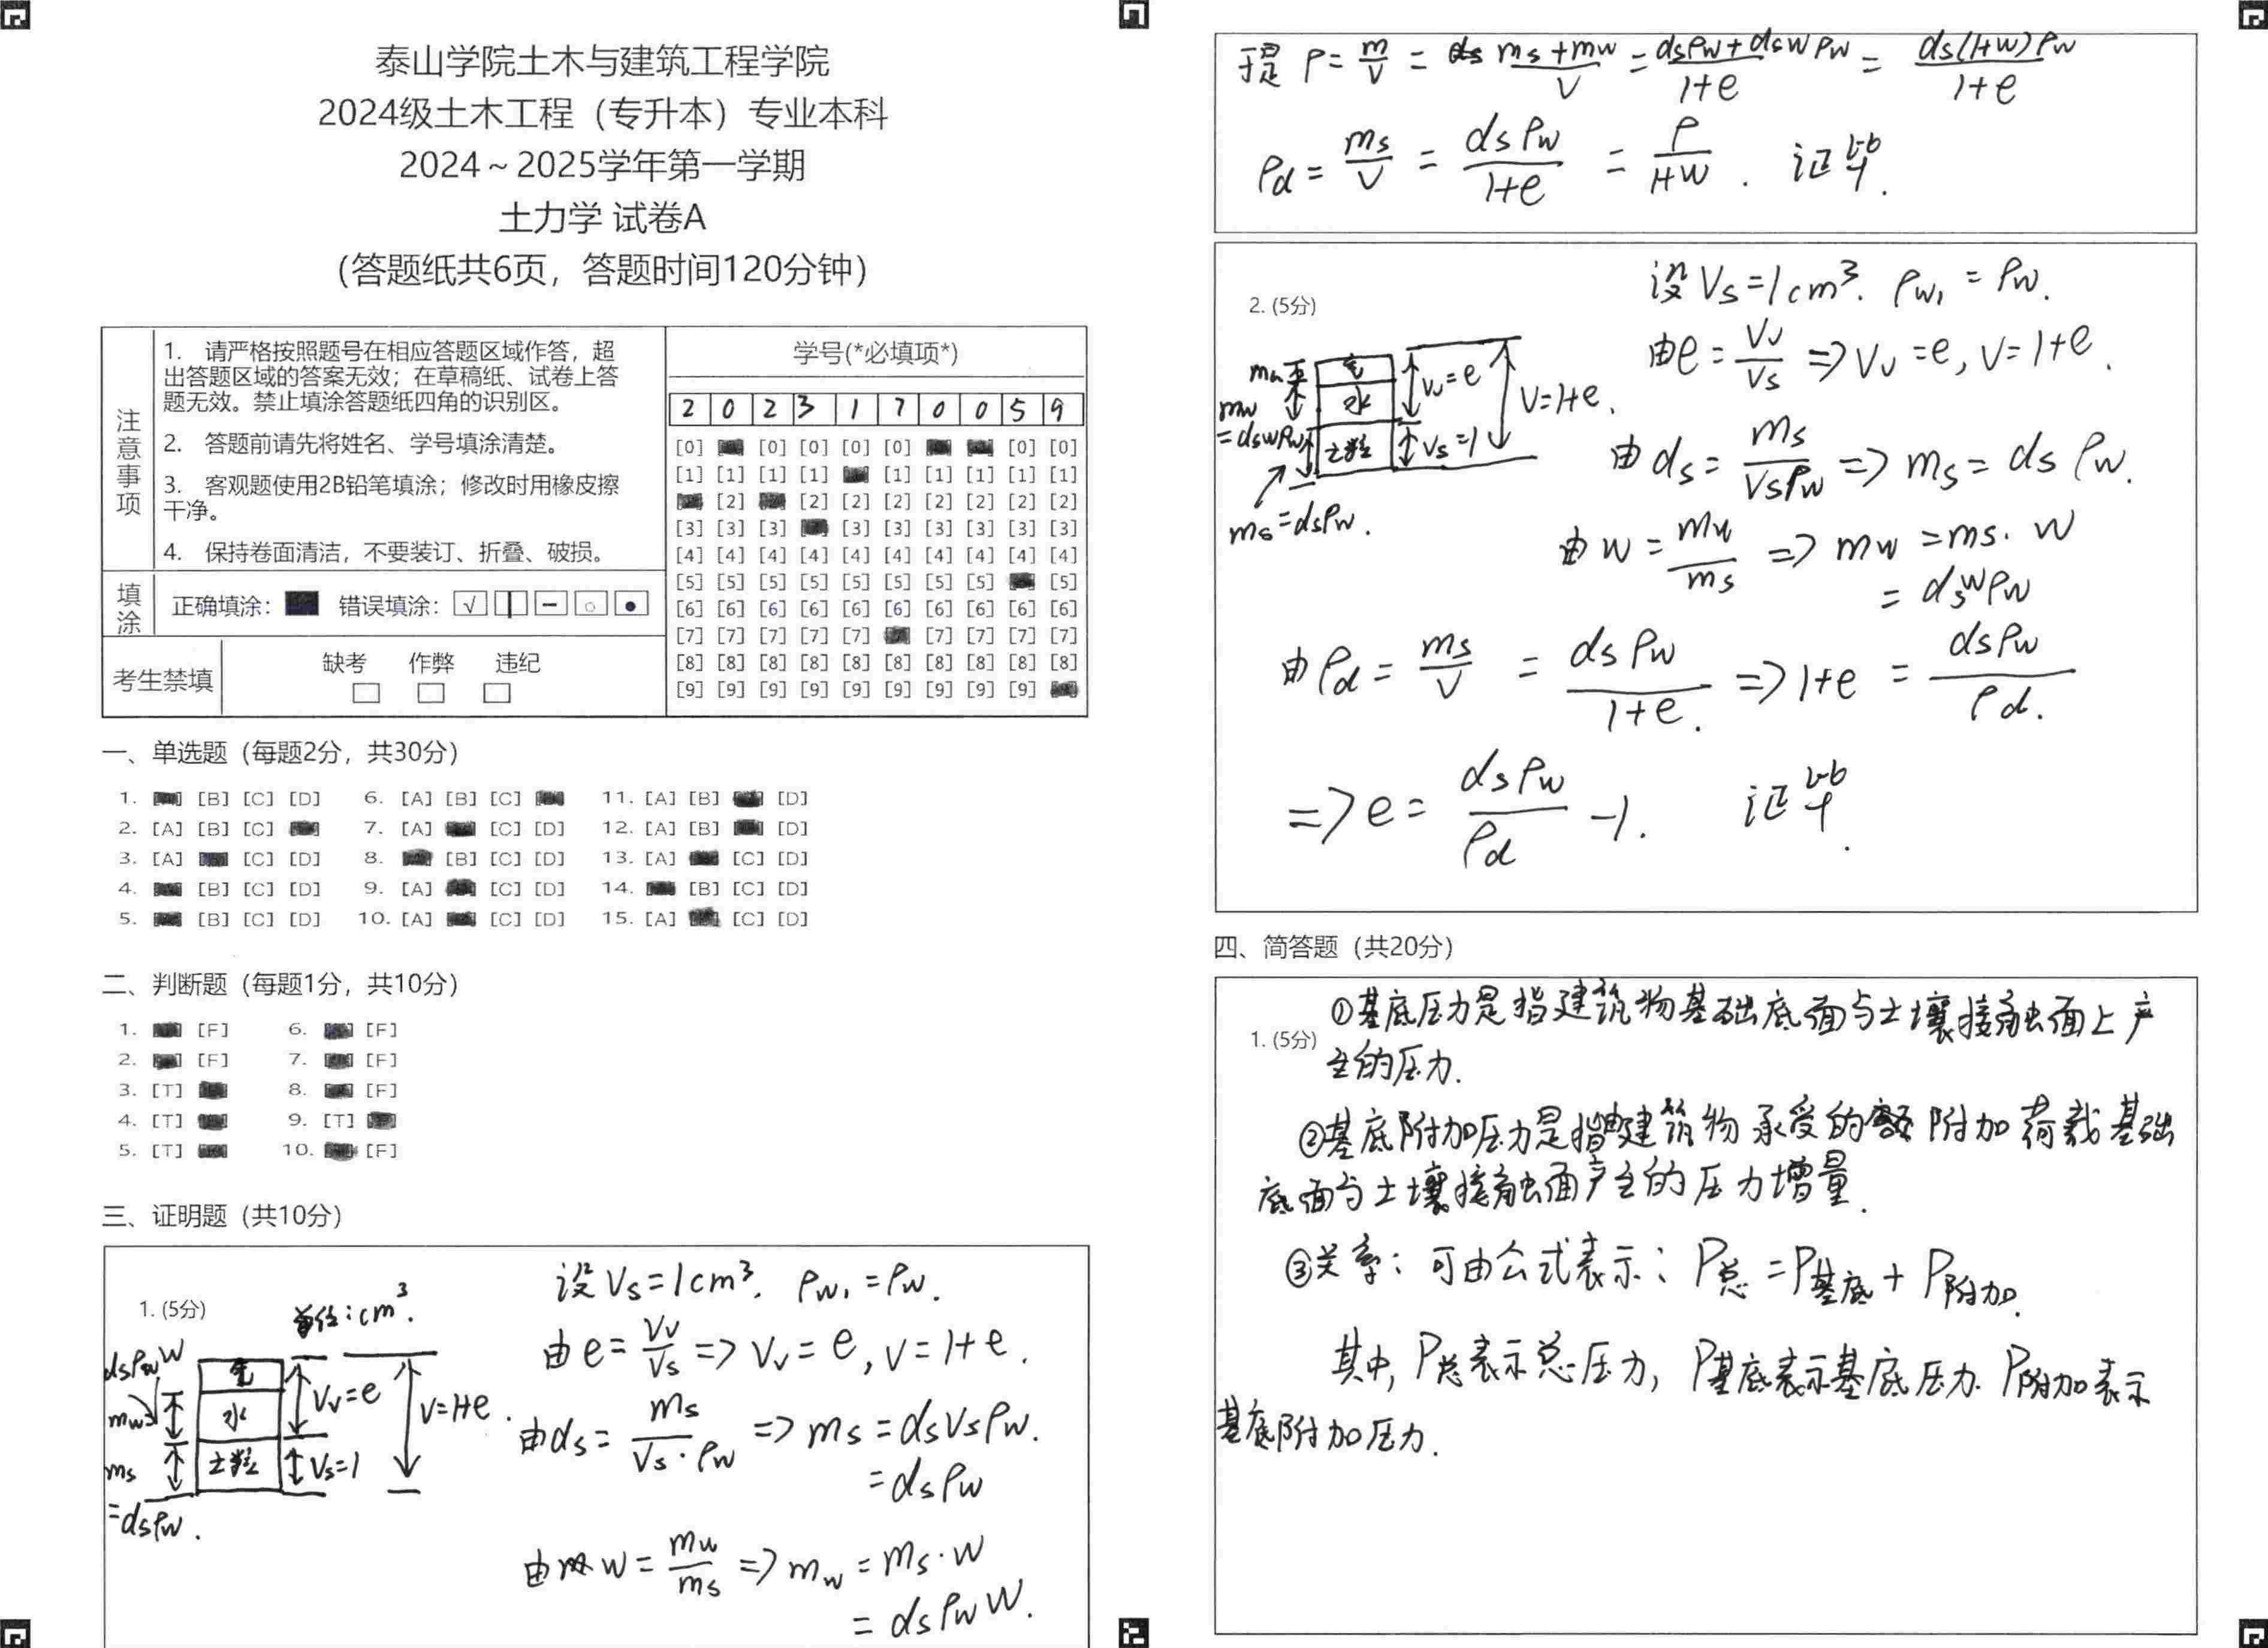 泰山学院土木与建筑工程学院
2024级土木工程（专升本）专业本科
2024～2025学年第一学期
土力学 试卷A
（答题纸共6页，答题时间120分钟）
注意事项
1. 请严格按照题号在相应答题区域作答，超
出答题区域的答案无效；在草稿纸、试卷上答
题无效。禁止填涂答题纸四角的识别区。
2. 答题前请先将姓名、学号填涂清楚。
3. 客观题使用2B铅笔填涂；修改时用橡皮擦
干净。
4. 保持卷面清洁，不要装订、折叠、破损。
填涂
正确填涂： 错误填涂：
考生禁填
缺考 作弊 违纪
学号(*必填项*)
2 0 2 3 1 7 0 0 5 9
[0] [0] [0] [0] [0] [0] [0]
[1] [1] [1] [1] [1] [1] [1] [1] [1]
[2] [2] [2] [2] [2] [2] [2] [2]
[3] [3] [3] [3] [3] [3] [3] [3] [3]
[4] [4] [4] [4] [4] [4] [4] [4] [4] [4]
[5] [5] [5] [5] [5] [5] [5] [5] [5]
[6] [6] [6] [6] [6] [6] [6] [6] [6] [6]
[7] [7] [7] [7] [7] [7] [7] [7] [7]
[8] [8] [8] [8] [8] [8] [8] [8] [8] [8]
[9] [9] [9] [9] [9] [9] [9] [9] [9]
一、单选题（每题2分，共30分）
1. [B] [C] [D] 6. [A] [B] [C] 11. [A] [B] [D]
2. [A] [B] [C] 7. [A] [C] [D] 12. [A] [B] [D]
3. [A] [C] [D] 8. [B] [C] [D] 13. [A] [C] [D]
4. [B] [C] [D] 9. [A] [C] [D] 14. [B] [C] [D]
5. [B] [C] [D] 10. [A] [C] [D] 15. [A] [C] [D]
二、判断题（每题1分，共10分）
1. [F] 6. [F]
2. [F] 7. [F]
3. [T] 8. [F]
4. [T] 9. [T]
5. [T] 10. [F]
三、证明题（共10分）
1. (5分)
单位:cm³.
dsρwW
mw
ms
=dsρw.
气
水
土粒
Vv=e
Vs=1
V=1+e.
设Vs=1cm³. ρw₁=ρw.
由e=Vv/Vs => Vv=e, V=1+e.
由ds=ms/(Vs·ρw) => ms=dsVsρw.
=dsρw
由w=mw/ms => mw=ms·w
=dsρwW.
于是 ρ=m/V=(ms+mw)/V=(dsρw+dswρw)/(1+e)=ds(1+w)ρw/(1+e)
ρd=ms/V=dsρw/(1+e)=ρ/(1+w). 证毕.
2. (5分)
ma
mw
=dswρw
ms=dsρw.
气
水
土粒
Vv=e
Vs=1
V=1+e.
设Vs=1cm³. ρw₁=ρw.
由e=Vv/Vs => Vv=e, V=1+e.
由ds=ms/(Vsρw) => ms=dsρw.
由w=mw/ms => mw=ms·w
=dswρw
由ρd=ms/V=dsρw/(1+e). => 1+e=dsρw/ρd.
=> e=dsρw/ρd-1. 证毕.
四、简答题（共20分）
1. (5分)
①基底压力是指建筑物基础底面与土壤接触面上产
生的压力.
②基底附加压力是指由建筑物承受的附加荷载基础
底面与土壤接触面产生的压力增量.
③关系：可由公式表示：P总=P基底+P附加.
其中，P总表示总压力，P基底表示基底压力.P附加表示
基底附加压力.